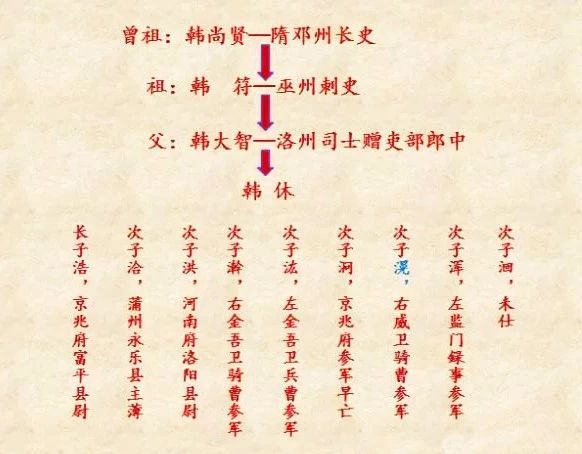 曾祖：韩尚贤—隋邓州长史
祖：韩 符—巫州刺史
父：韩大智—洛州司士赠吏部郎中
韩 休
长子浩，京兆府富平县尉
次子洽，蒲州永乐县主薄
次子洪，河南府洛阳县尉
次子澣，右金吾卫骑曹参军
次子汯，左金吾卫兵曹参军
次子泂，京兆府参军早亡
次子滉，右威卫骑曹参军
次子浑，左监门録事参军
次子洄，未仕